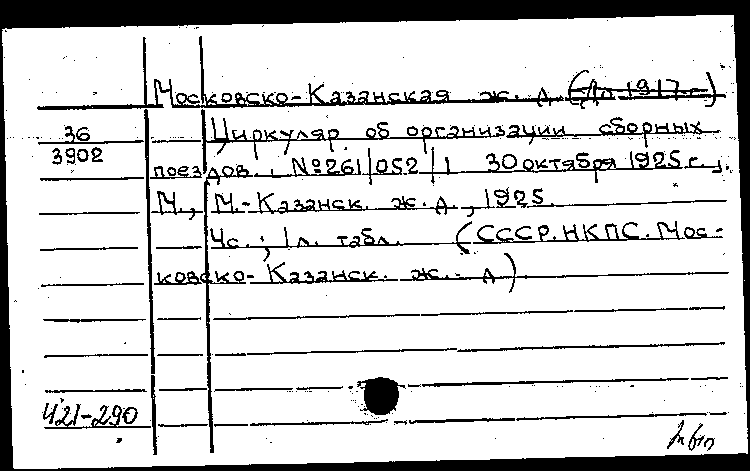 Московско-Казанская ж. д. (До 1917 г.)
36
3902
Циркуляр об организации сборных
поездов., №261/052/1 30 октября 1925 г.,
М., М.-Казанск. ж. д., 1925.
4с.; 1л. табл. (СССР.НКПС.Мос-
ковско-Казанск. ж.-д)
Ч21-290